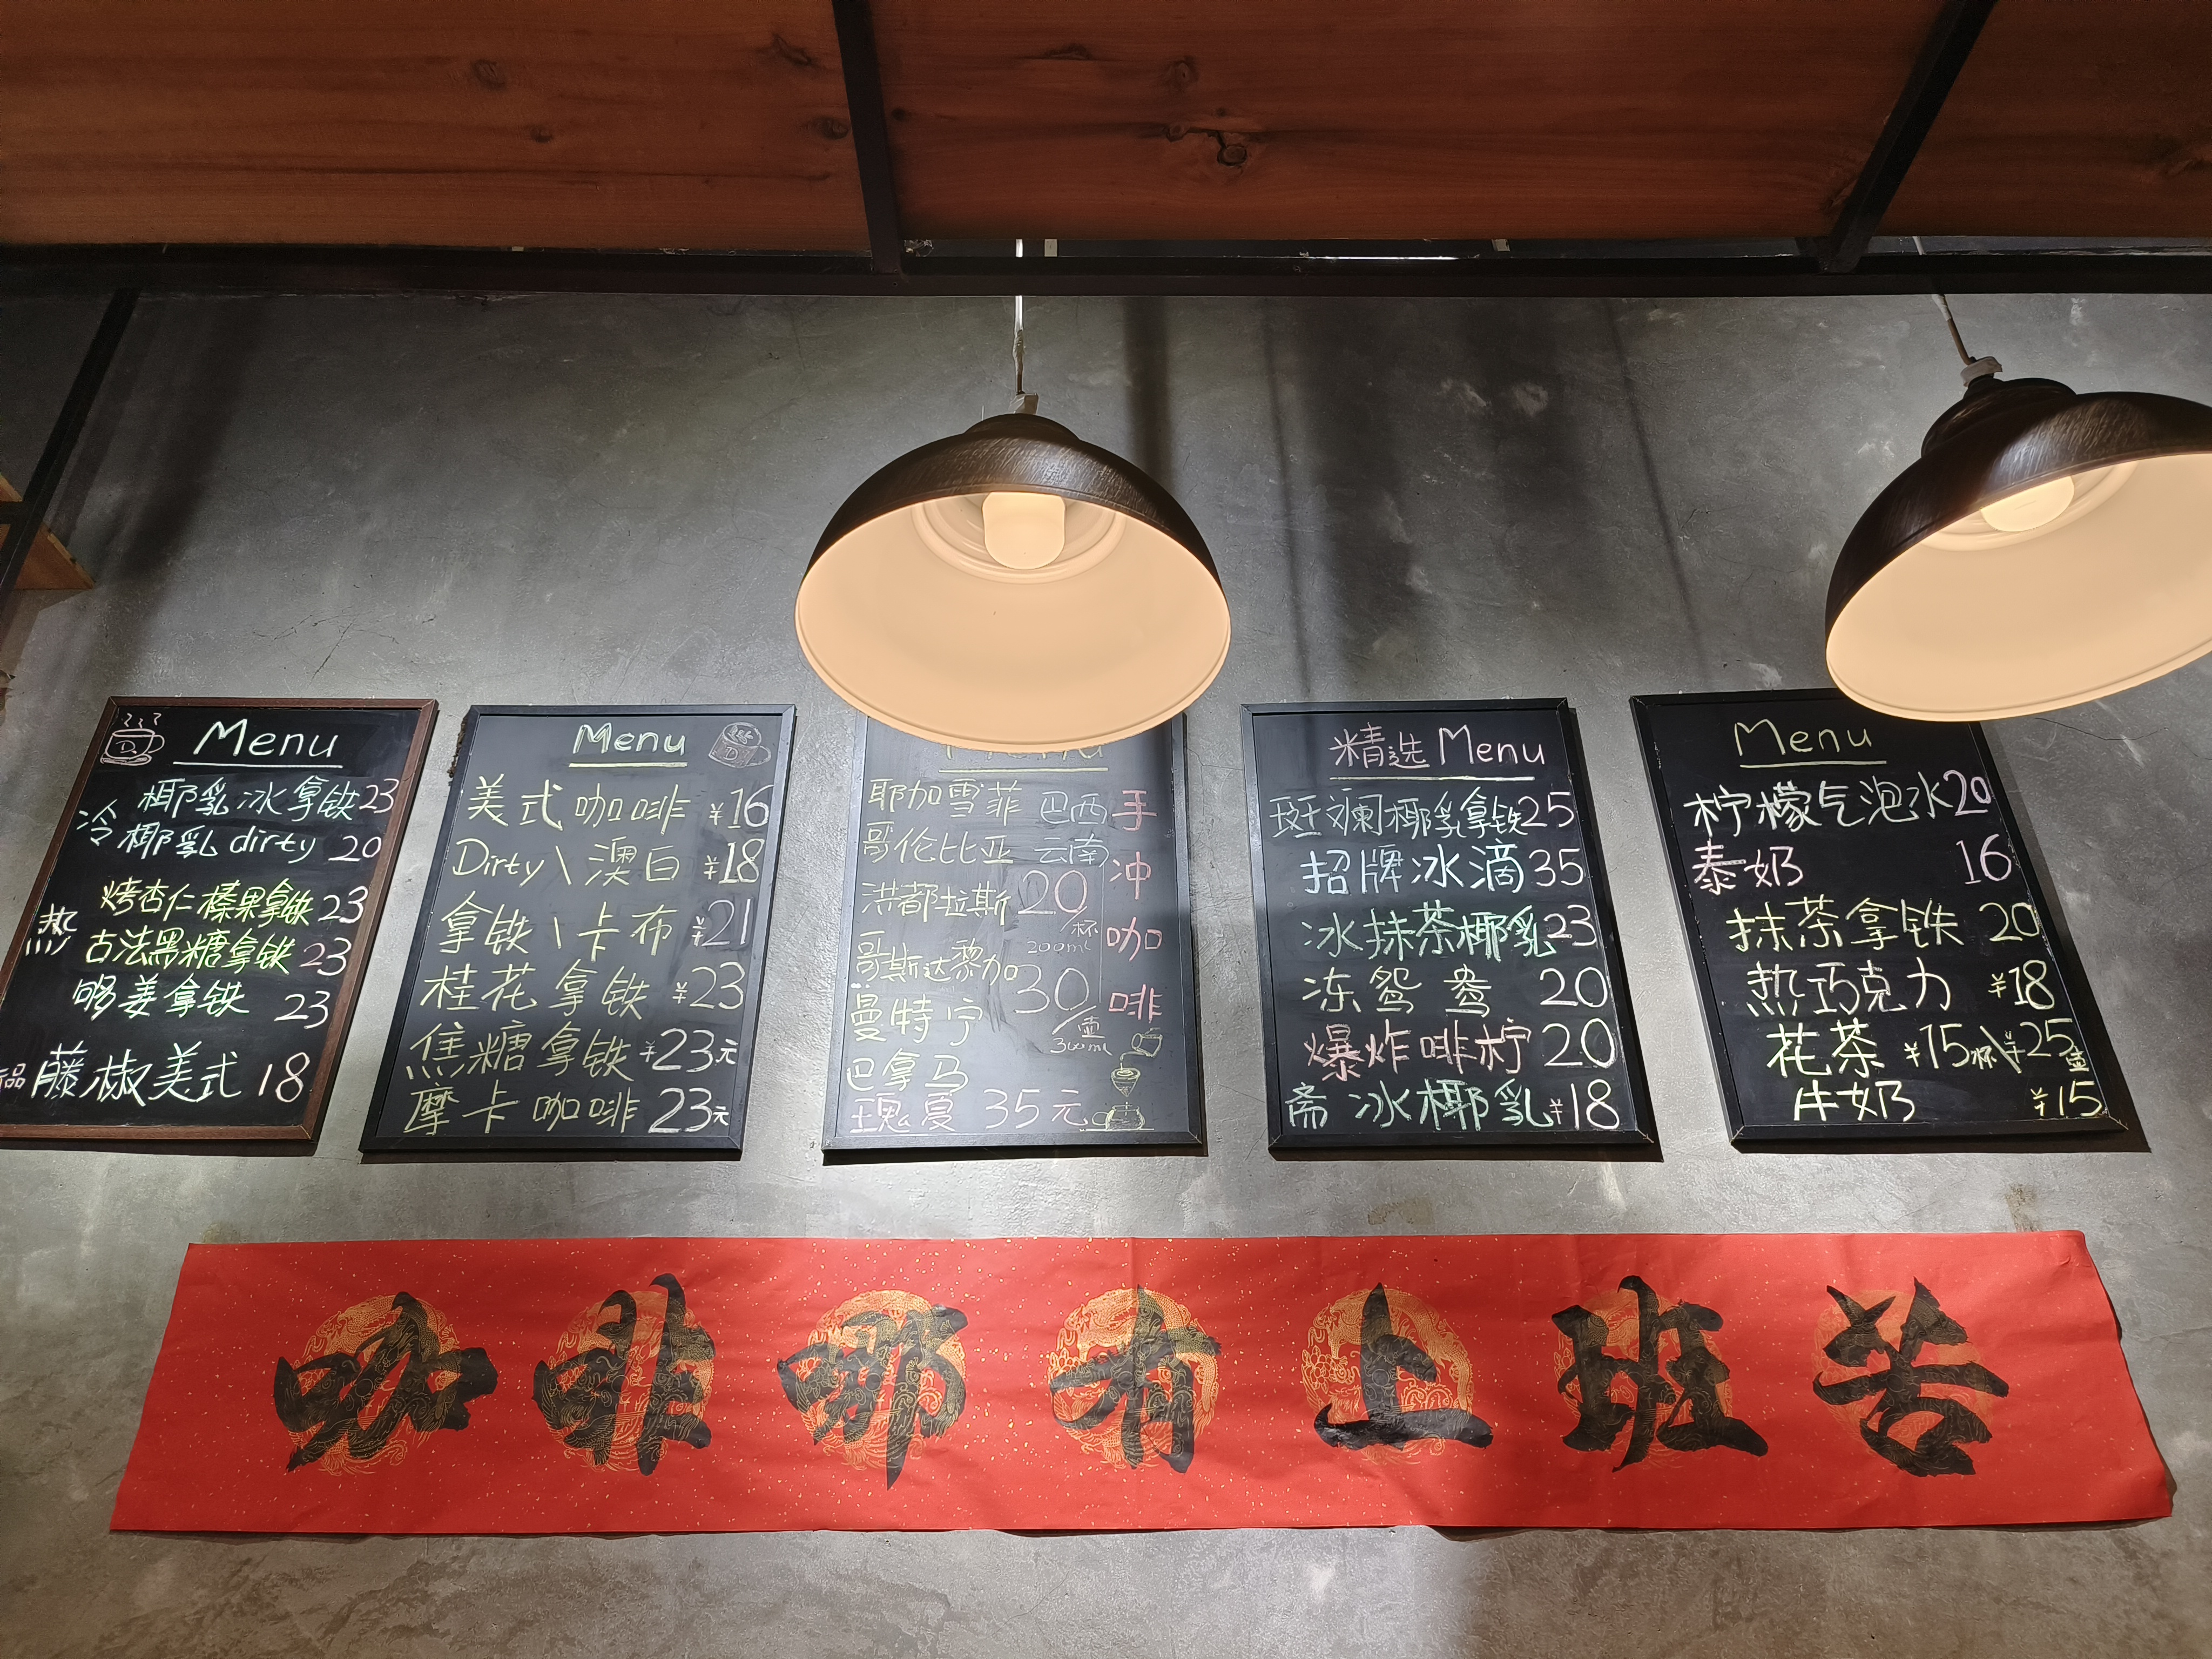 Menu
冷
椰乳冰拿铁23
椰乳dirty 20
热
烤杏仁榛果拿铁23
古法黑糖拿铁23
够姜拿铁 23
品 藤椒美式 18
Menu
美式咖啡 ¥16
Dirty\澳白 ¥18
拿铁\卡布 ¥21
桂花拿铁 ¥23
焦糖拿铁 ¥23元
摩卡咖啡 23元
手冲咖啡
耶加雪菲 巴西
哥伦比亚 云南
洪都拉斯 20/杯
200ml
哥斯达黎加 30/壶
300ml
曼特宁
巴拿马
瑰夏 35元
精选Menu
斑斓椰乳拿铁25
招牌冰滴35
冰抹茶椰乳23
冻鸳鸯 20
爆炸啡柠 20
斋冰椰乳¥18
Menu
柠檬气泡水20
泰奶 16
抹茶拿铁 20
热巧克力 ¥18
花茶 ¥15杯\¥25壶
牛奶 ¥15
咖啡哪有上班苦